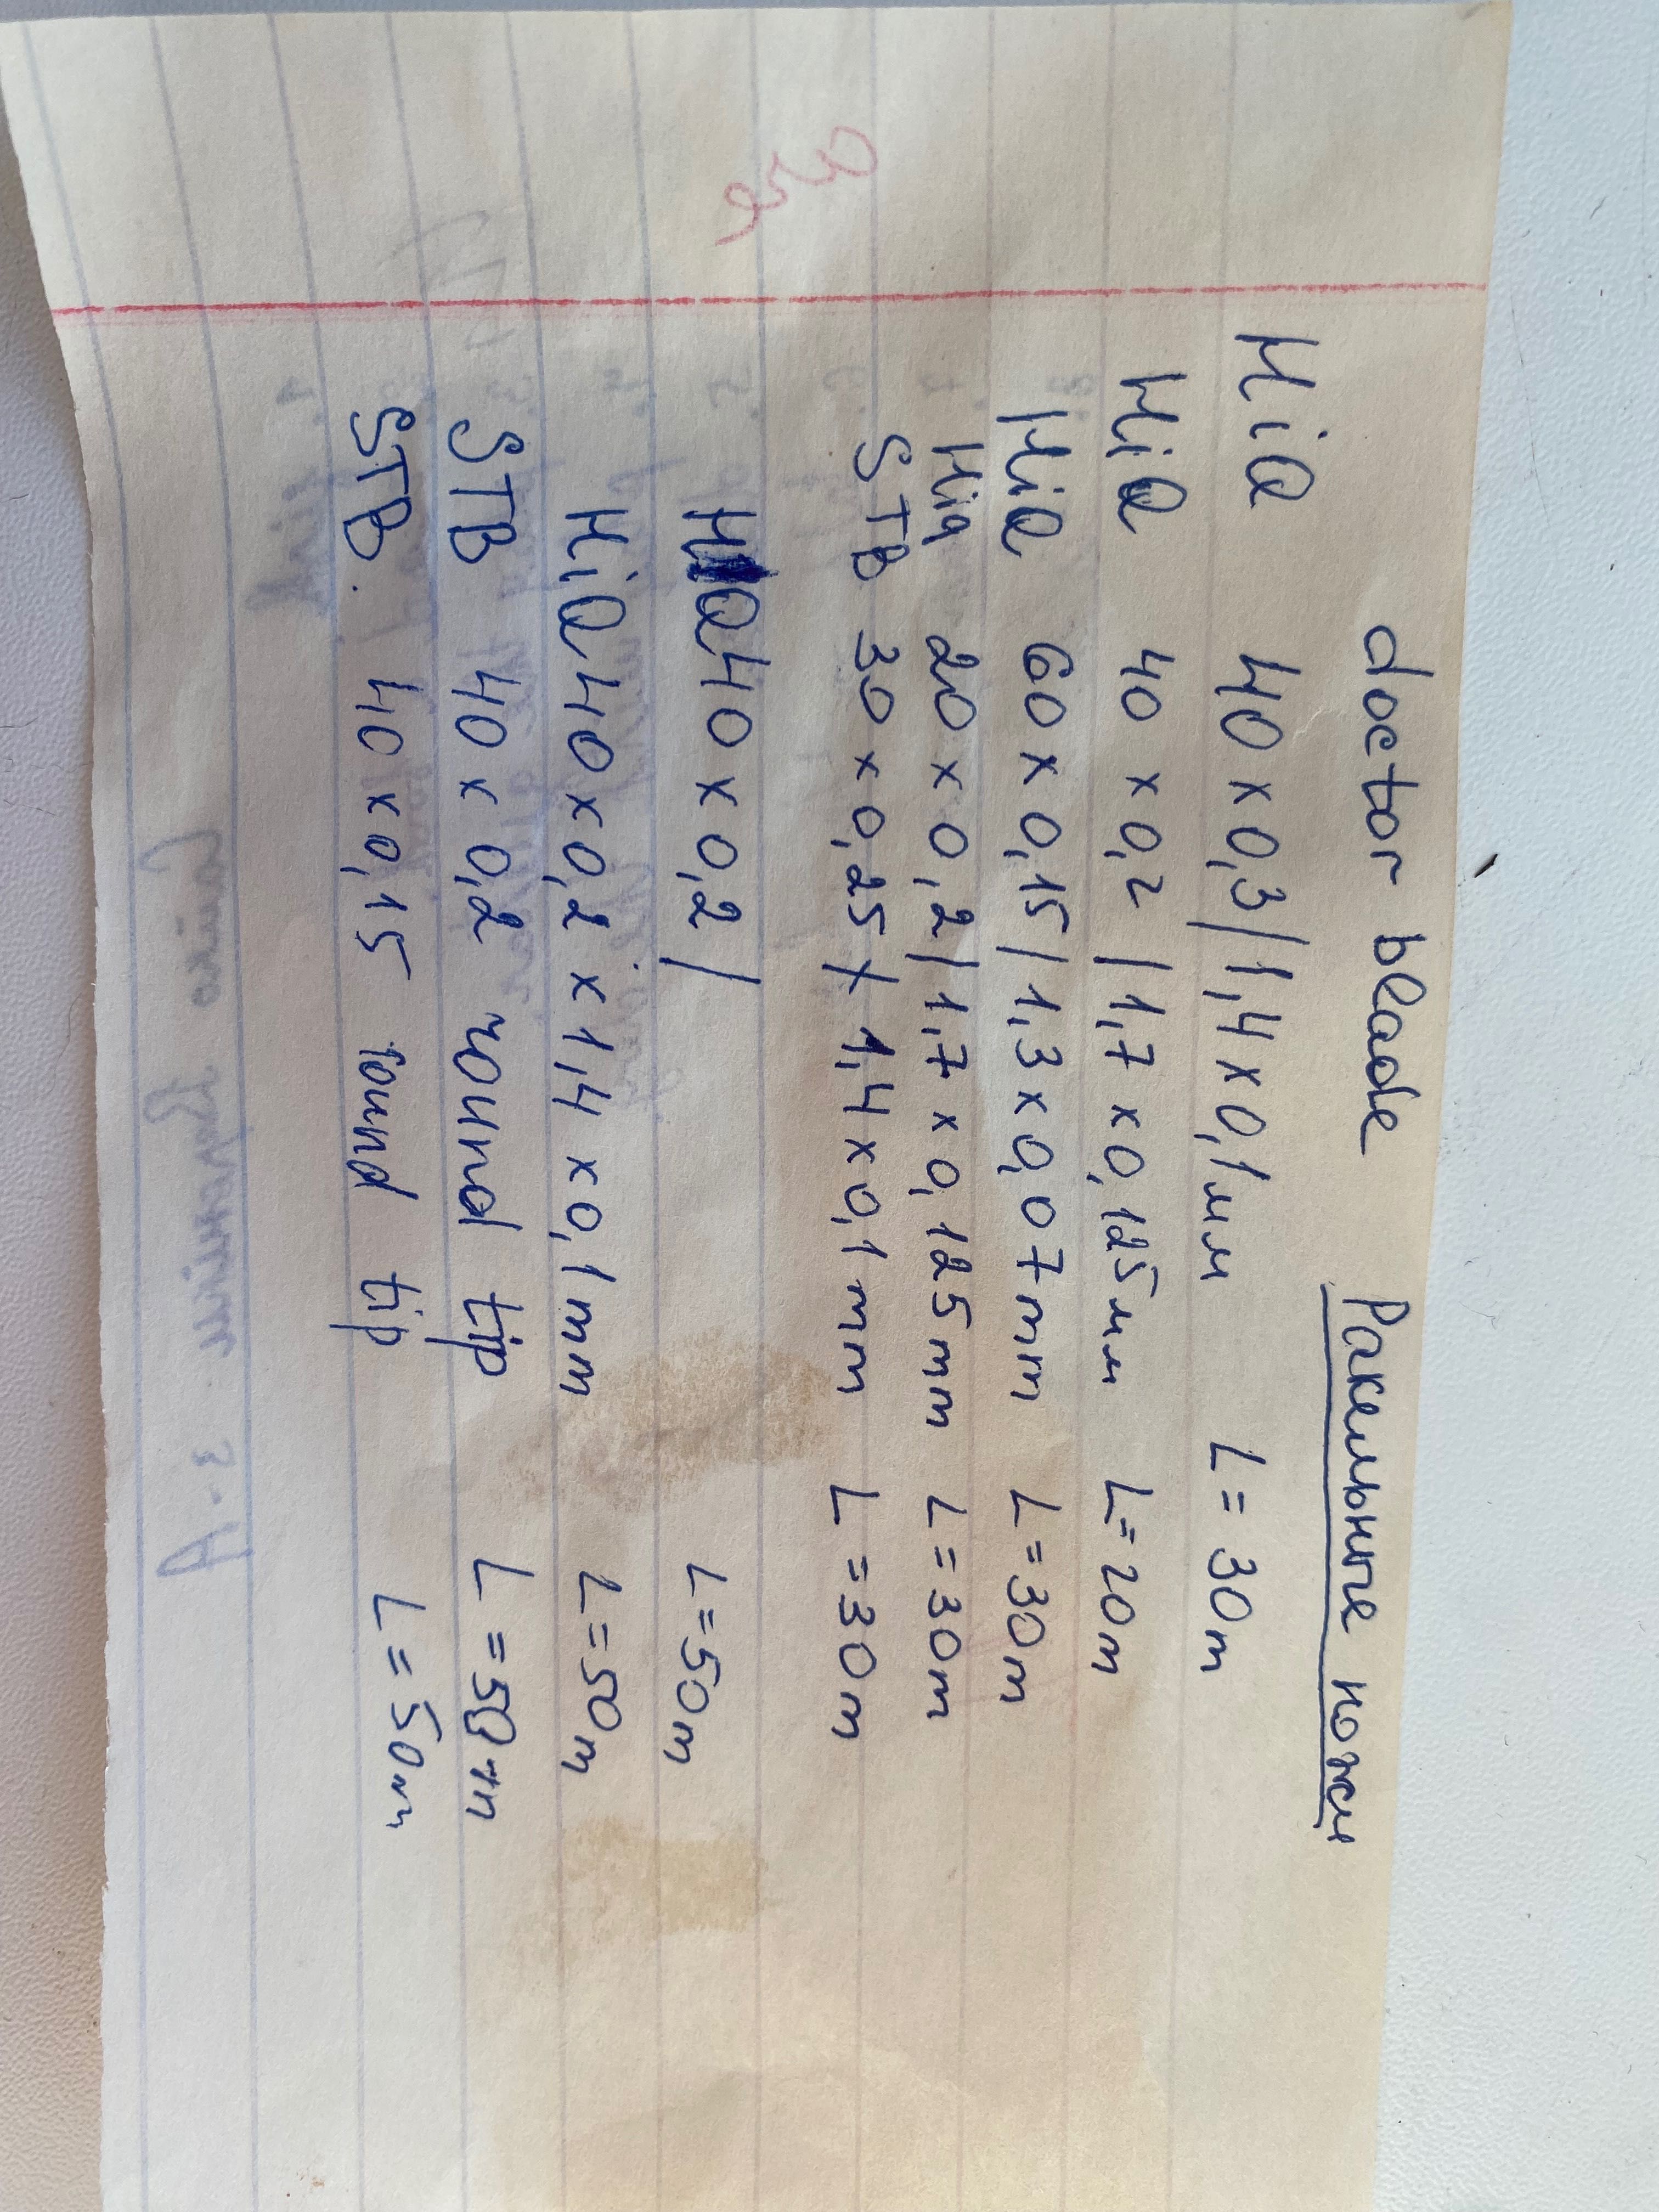 doctor blade Ракельные ножи
HiQ 40 x 0,3/1,4 x 0,1мм L = 30m
HiQ 40 x 0,2 /1,7 x 0,125мм L = 20m
HiQ 60 x 0,15/1,3 x 0,07mm L = 30m
Hiq 20 x 0,2/1,7 x 0,125mm L = 30m
STB 30 x 0,25 x 1,4 x 0,1mm L = 30m
HiQ 40 x 0,2 / L = 50m
HiQ 40 x 0,2 x 1,4 x 0,1mm L = 50m
STB 40 x 0,2 round tip L = 50m
STB. 40 x 0,15 round tip L = 50m